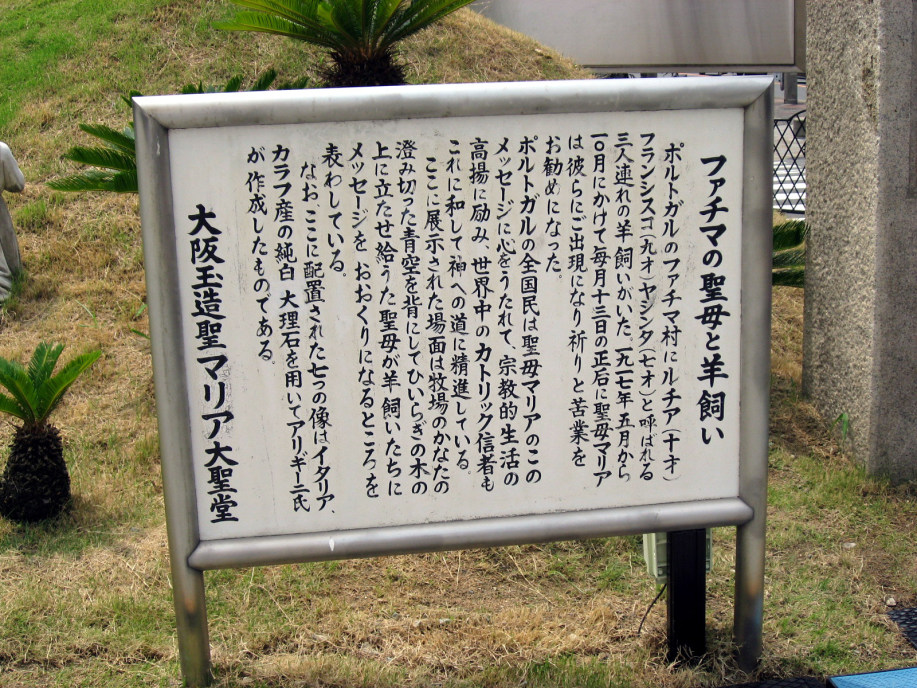 ファチマの聖母と羊飼い
ポルトガルのファチマ村にルチア(十才)
フランシスゴ(九才)ヤジンタ(七才)と呼ばれる
三人連れの羊飼いがいた。一九一七年五月から
一〇月にかけて毎月十三日の正后に聖母マリア
は彼らにご出現になり祈りと苦業を
お勧めになった。
ポルトガルの全国民は聖母マリアのこの
メッセージに心をうたれて、宗教的生活の
高揚に励み、世界中のカトリック信者も
これに和して神への道に精進している。
ここに展示された場面は牧場のかなたの
澄み切った青空を背にしてひいらぎの木の
上に立たせ給うた聖母が羊飼いたちに
メッセージをおおくりになるところを
表わしている。
なおここに配置された七つの像はイタリア、
カラフ産の純白大理石を用いてアリギーニ氏
が作成したものである。
大阪玉造聖マリア大聖堂